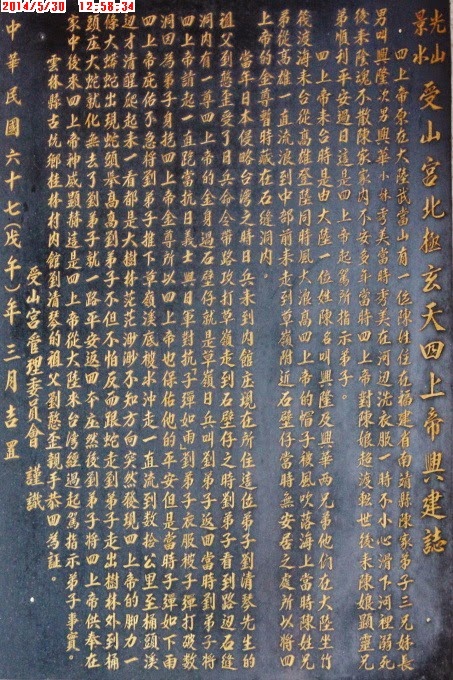 2014/5/30 12:58:34
光山
景水
受山宮北極玄天四上帝興建誌
四上帝原在大陸武當山有一位陳姓住在福建省南靖縣陳家弟子三兄妹長
男叫興隆次男興華小妹秀美當時秀美在河邊洗衣服一時不小心滑下河裡溺死
後來陰魂不散陳家家內不安多年當時四上帝對陳娘超渡轉世後來陳娘顯靈兄
弟順利平安過日這是四上帝起駕所指示弟子。
四上帝未台時是由大陸一位姓陳名叫興隆及興華兩兄弟他們在大陸坐竹
後渡海來台從高雄登陸同時風大浪高四上帝的帽子被風吹落海上當時陳姓兄
弟從高雄一直流浪到中部前來走到草嶺附近石壁仔當時無安居之處所以將四
上帝的金尊暫時藏在石縫洞內
當年日本侵略台灣之時日兵來到內館庄現在所住這位弟子劉清琴先生的
祖父劉憨歪受了日兵命令帶路攻打草嶺走到石壁仔之時劉弟子看到路邊石縫
洞內有一尊四上帝的金身過石壁仔就是草嶺日兵叫劉弟子返回當時劉弟子將
四上帝請起一直跪當抗日義士與日軍對抗子彈如雨劉弟子衣服被子彈打破數
洞因為弟子身抱四上帝金尊所以四上帝也保佑他的平安但是當時子彈如下雨
四上帝庇佑不急將劉弟子推下草嶺溪底被水沖走一直流到數拾公里至桶頭溪
邊才清醒爬起來一看都是大樹林茫茫渺渺不知方向突然發現四上帝的腳力一
條大蟒蛇出現蛇頭舉高高劉弟子不但不怕反而跟蛇走劉弟子走出樹林外到桶
頭庄大蛇就化無去了劉弟子就一路平安返四本庄然後劉弟子將四上帝供奉在
家中後來四上帝神威顯赫這是四上帝從大陸來台灣經過起駕指示弟子事實。
雲林縣古坑鄉桂林村內館劉清琴的祖父劉憨歪親手恭四為証。
受山宮管理委員會 謹識
中華民國六十七(戊午)年三月吉置